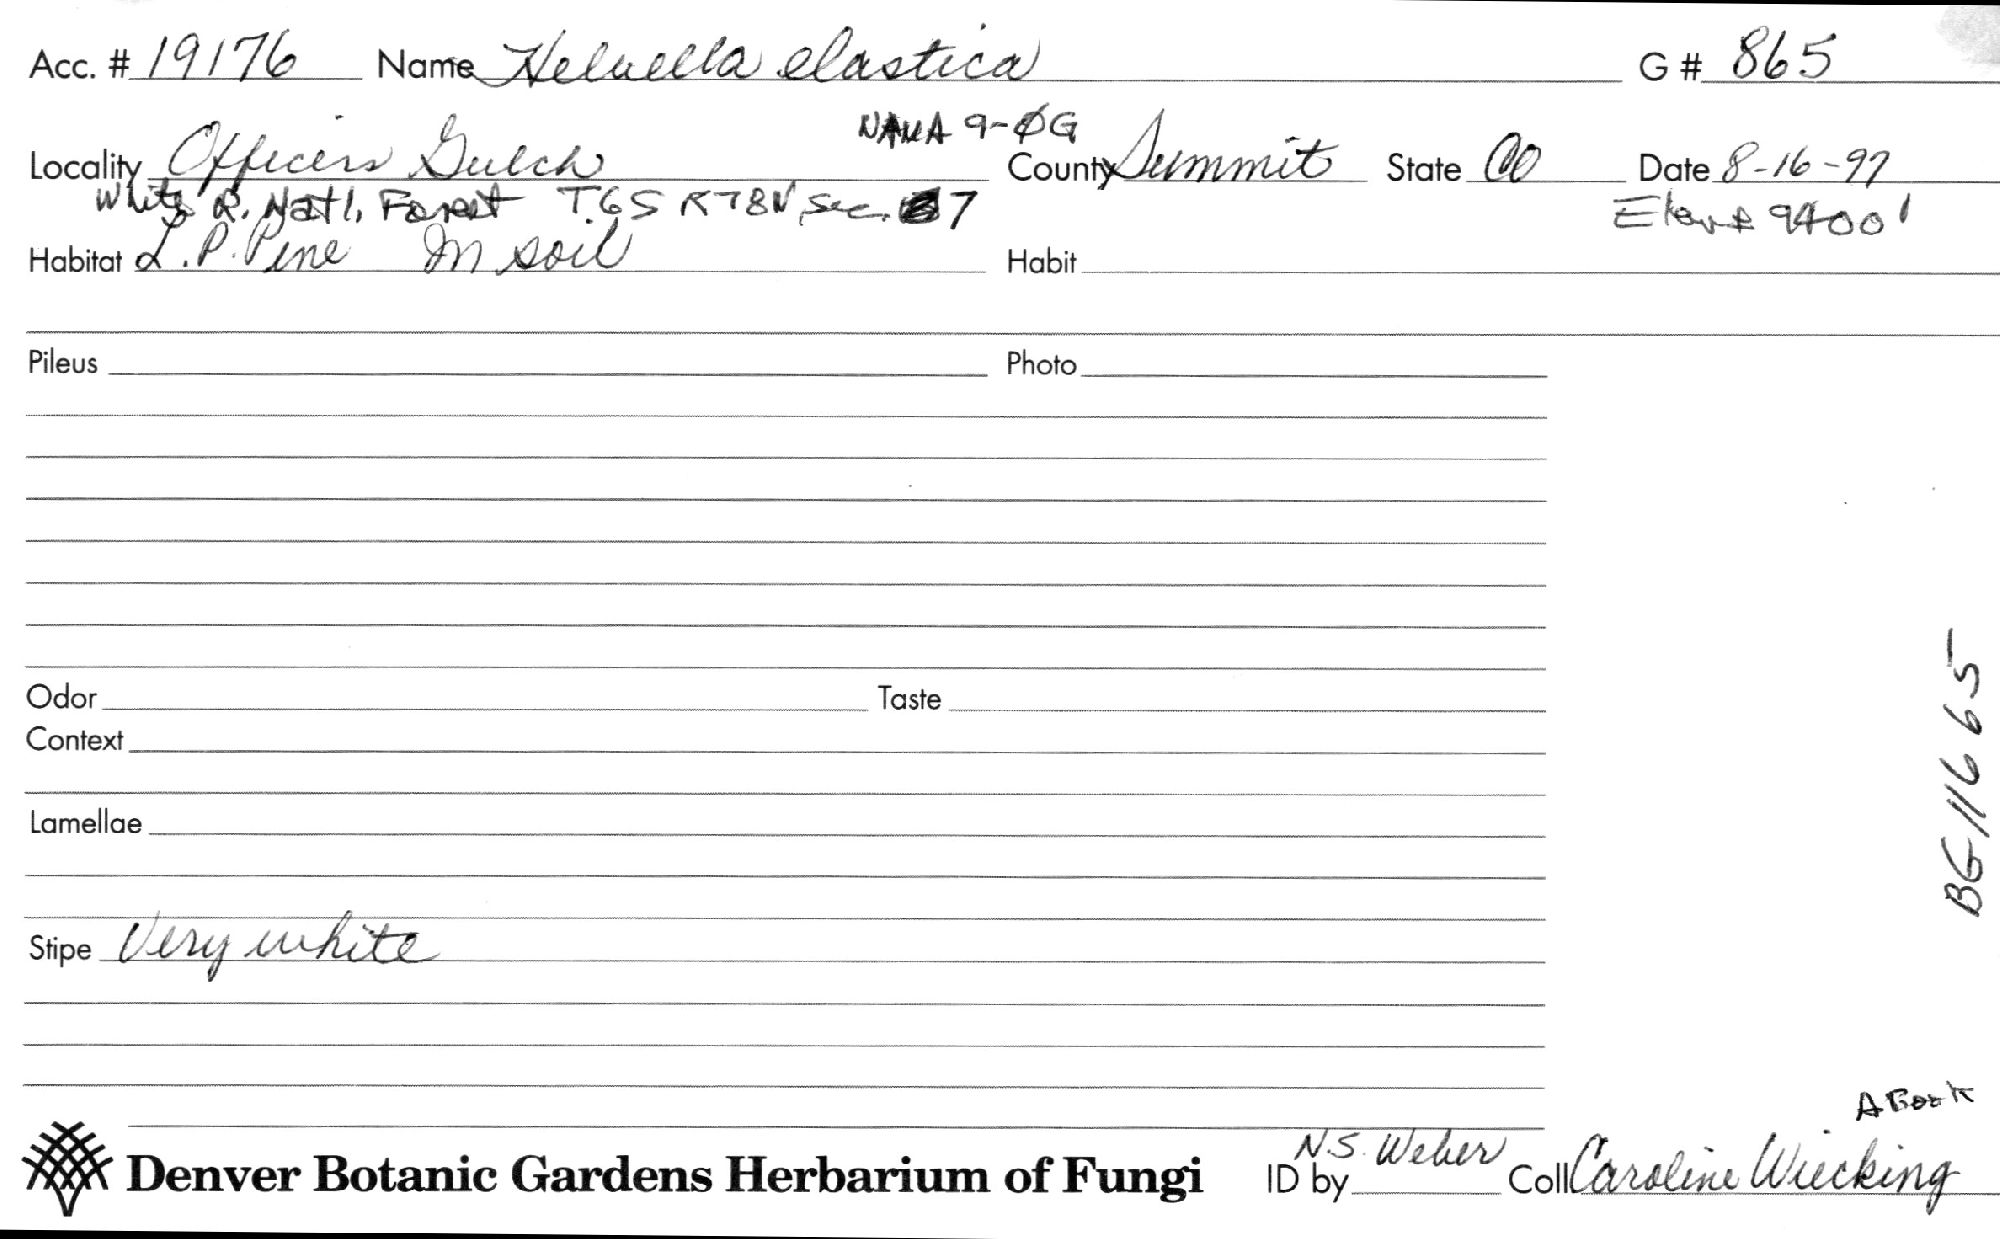 Acc. # 19176 Name Helvella elastica G # 865
NAMA 9-ØG
Locality Officers Gulch County Summit State CO Date 8-16-97
White R. Nat'l. Forest T.6S R78W Sec. 7 Elev 9400'
Habitat L.P. Pine In soil Habit
Pileus Photo
Odor Taste
Context
Lamellae
Stipe Very white
BG11665
A Book
Denver Botanic Gardens Herbarium of Fungi ID by N.S. Weber Coll Caroline Wiecking